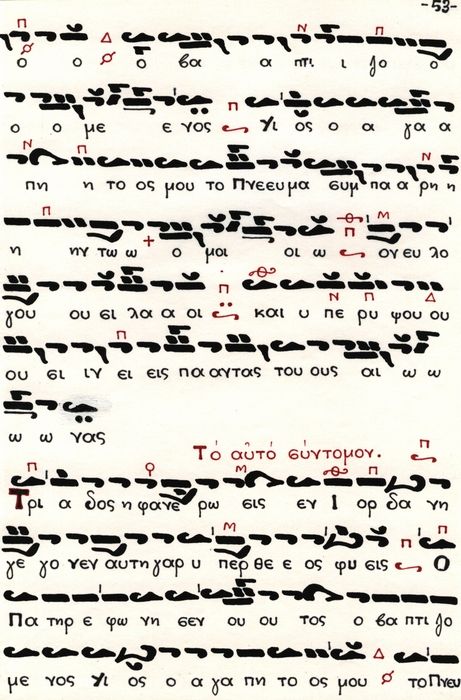 -53-
ο ο ο βα α πτι ι ζο ο
ο ο με ε νος Υι ος ο α γα α
πη η το ος μου το Πνεευμα ευμ πα α ρη η
η ην τω ω ο μοι οι ω ον ευ λο
γου ου σι λα α οι και υ πε ρυ ψου ου
ου σι ιν ει εις πα αντας του ους αι ω ω
ω ω νας
Τό αὐτό σύντομον.
Τρι α δος η φανε ρω σις εν Ι ορ δα νη
γε γο νεν αυτη γαρ υ περ θε ε ος φυ σις Ο
Πα τηρ ε φω νη σεν ου ου τος ο βα πτι ζο
με νος Υι ος ο α γα πη το ος μου το Πνευ